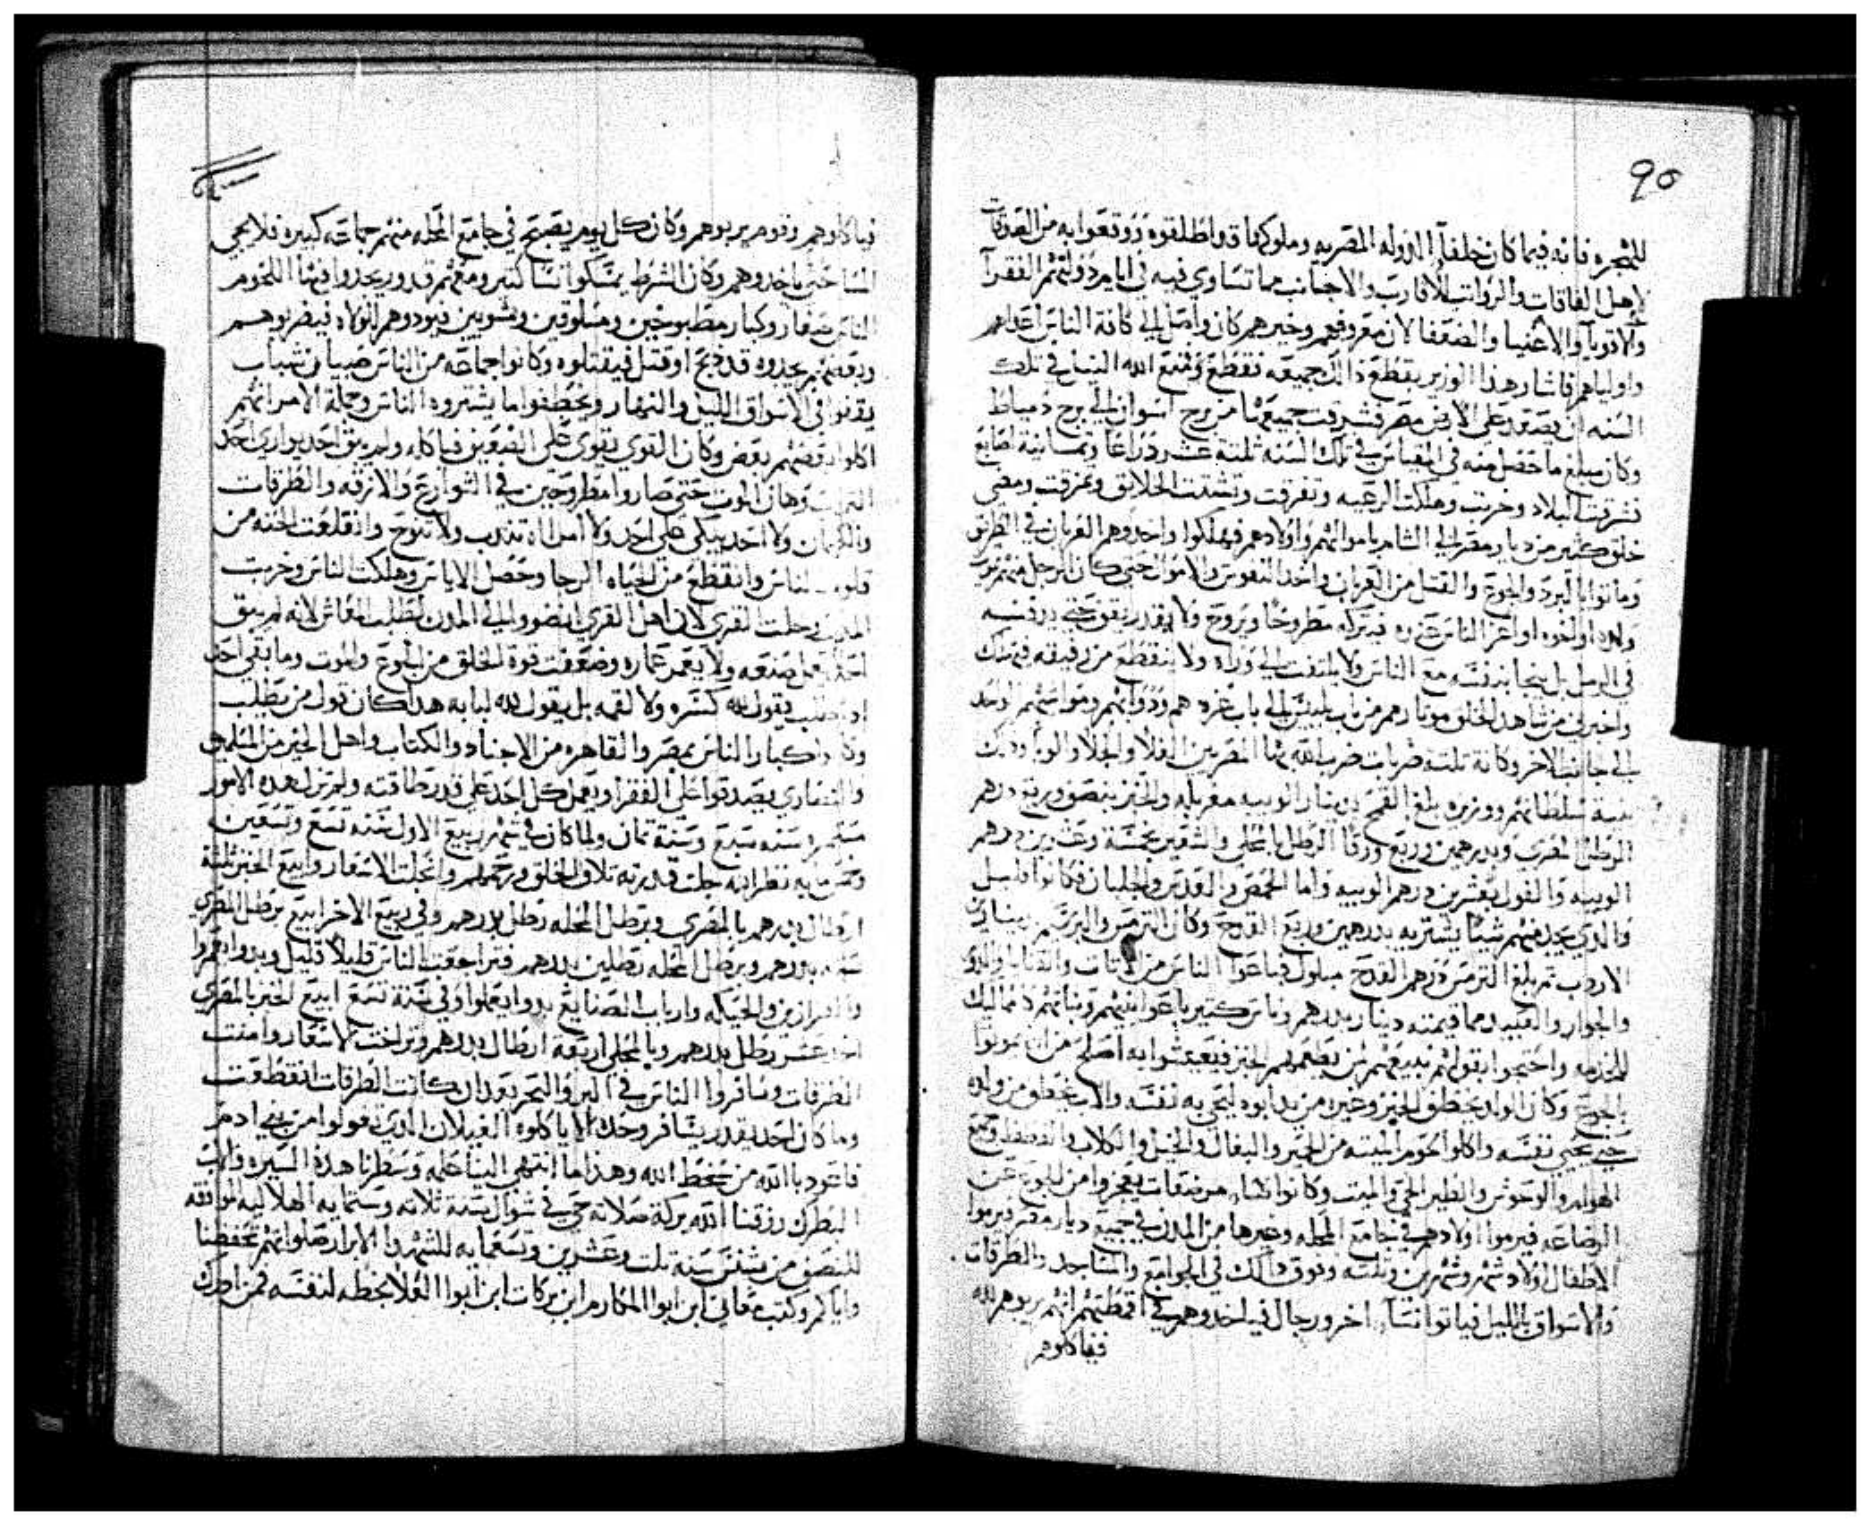 90
للشجره فانه فيما كان خلفآ الدوله المصريه وملوكها قد اطلقوه ووقعوا به من الصدقات
لاهل الفاقات والرواتب للاقارب والاجانب مما تساوي فيه في ايام دولتهم الفقرآ
والاقويآ والاغنيا والضعفا لان معروفهم وخيرهم كان واصل الي كافة الناس اعداهم
واولياهم فاشار هذا الوزير بقطع ذالك جميعه فقطع ومنع الله النيل في تلك
السنه ان يصعد علي الارض مصر فشرقت جميعها من برج اسوان الي برج دمياط
وكان مبلغ ما حصل منه في المقياس في تلك السنه ثلثة عشر دراعا وثمانية اصابع
فشرقت البلاد وخربت وهلكت الرعيه وتفرقت وتشتتت الخلايق وتمزقت ومضي
خلق كثير من ديار مصر الي الشام باموالهم واولادهم فهلكوا واخدوهم العربان في الطريق
وماتوا بالبرد والجوع والقتل من العربان واخد النفوس والاموال حتي كان الرجل منهم يموت
ولده او اخوه او اعز الناس عنده فيتركه مطروحا ويروح ولا يقدر يقف حتي يدفنه
في الرمل بل ينجا بنفسه مع الناس ولا يلتفت الي وراه ولا ينقطع من رفيقه فيهلك
واخبرني من شاهد الخلق موتا رهم من باب بلبيس الي باب غزه هم ودوابهم ومواشيهم الواحد
الي جانب الاخر وكانة تلتة ضربات ضرب الله بها المصريين الغلا والجلا والوبا ودلك
بنية سلطانهم ووزيره بلغ القمح دينار الويبه مغربله والخبز بنصف وربع درهم
الرطل المصري وبدرهمين وربع ورقا الرطل المحلي والشعير بخمسة وعشرين درهم
الويبه والفول بعشرين درهم الويبه واما الحمص والعدس والجلبان فكانوا قليل
والدي يجد منهم شيئا يشتريه بدرهمين وربع القدح وكان الترمس والبرسيم بدينارين
الاردب ثم بلغ الترمس درهم القدح مبلول فباعوا الناس من الاتات والقنايا والدور
والجوار والعبيد مما قيمته دينار بدرهم وناس كتير باعوا بنيهم وبناتهم مماليك
للخدمه واحتجوا بقولهم نبيعهم لمن يطعمهم الخبز فيعيشوا به اصلح من ان يموتوا
بالجوع وكان الولد يخطف الخبز وغيره من يد ابوه ليحي به نفسه والاب يخطف من ولده
حتي يحيي نفسه واكلوا لحوم الميته من الحمير والبغال والخيل والكلاب والقطط وجميع
الهوام والوحوش والطير الحي والميت وكانوا النساء مرضعات يعجزوا من الجوع عن
الرضاعه فيرموا اولادهم في جامع المحله وغيرها من المدن في جميع ديار مصر فيرموا
الاطفال اولاد شهر وشهرين وتلته وفوق دالك في الجوامع والمساجد والطرقات
والاسواق بالليل فياتوا نسآء اخر ورجال فياخدوهم في اقمطتهم انهم يربوهم لله
فياكلوهم
فياكلوهم وقوم يربوهم وكان كل يوم يصبح في جامع المحله منهم جماعه كبيره فلا يجي
المسا حتي ياخدوهم وكان الشرط يمسكوا نسا كتير ومعهم قدور يجدوا فيها اللحوم
الناس صغار وكبار مطبوخين ومسلوقين ومشويين فيودوهم الولاه فيضربوهم
وبعضهم يجدوه قد دبح او قتل فيقتلوه وكانوا جماعه من الناس صبيان شباب
يقفوا في الاسواق الليل والنهار ويخطفوا ما يشتروه الناس وجملة الامر انهم
اكلوا بعضهم بعض وكان القوي يقوي علي الضعيف فياكله ولم يبق احد يواري احد
التراب وهان الموت حتي صاروا مطروحين في الشوارع والازقه والطرقات
والكيمان ولا احد يبكي علي احد ولا امراة تندب ولا تنوح وانقلعت الحنه من
قلوب الناس وانقطع من الحياه الرجا وحصل الاياس وهلكت الناس وخربت
المدن وخلت القري لان اهل القري انضووا الي المدن لطلب المعاش لانه لم يبق
احد يعمل صنعه ولا يعمر عماره وضعفت قوة الخلق من الجوع والموت وما بقي احد
ادا طلب يقول لله كسره ولا لقمه بل يقول لله لبابه هدا كان قول من يطلب
وكانوا كبار الناس بمصر والقاهره من الاجناد والكتاب واهل الخير من المسلمين
والنصاري يصدقوا علي الفقرا ويعمل كل احد علي قدر طاقته ولم تزل هده الامور
مستمره سنه سبع وسنة تمان ولما كان في شهر ربيع الاول سنه تسع وتسعين
وخمسمايه نظر الله جلت قدرته تلاف الخلق ورحمهم وانحلت الاسعار وابيع الخبز ثلثة
ارطال بدرهم بالمصري وبرطل المحله رطل بدرهم وفي ربيع الاخر ابيع برطل المصري
سته بدرهم وبرطل المحله رطلين بدرهم فتراجعت الناس قليلا قليل وبدوا يعمروا
والقزازين والحيكه وارباب الصنايع بدوا يعملوا وفي سنة تسع ابيع الخبز بالمصري
احد عشر رطل بدرهم وبالمحلي اربعة ارطال بدرهم وتراخت الاسعار وامنت
الطرقات وسافروا الناس في البر والبحر بعد ان كانت الطرقات انقطعت
وما كان احد يقدر يسافر وحده الا ياكلوه الغيلان الدين تغولوا من بني ادم
فاعود بالله من سخط الله وهذا ما انتهي الينا علمه وسطرنا هدة السيره والاب
البطرك رزقنا الله بركة صلاته حي في شوال سنة ثلاثه وستمايه الهلاليه الموافقه
للنصف من بشنس سنة تلت وعشرين وتسعمايه للشهدا الابرار صلواتهم تحفظنا
واياكم وكتب معاني ابن ابوا المكارم ابن بركات ابن ابوا العلا بخطه لنفسه فمن ادرك